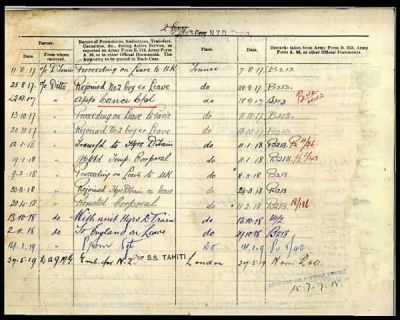 2 Coy N.Z.D. Train
Report.
Record of Promotions, Reductions, Transfers,
Casualties, &c., during Active Service, as
reported on Army Form B. 213, Army
Form A. 36, or in other Official Documents. The
Authority to be quoted in each Case
Place
Date
Remarks taken from Army Form B. 213, Army
Form A. 36, or other Official Documents.
Date.
From whom
received.
11.8.17 O/C D Train Proceeding on Leave to UK France 7.8.17 B213
25.8.17 O/C Ditto Rejoined No 2 Coy ex Leave do 20.8.17 B213
App Lance Cpl do B213
13.10.17 Proceeding on Leave to Paris do B213
20.10.17 Rejoined No 2 Coy ex Leave do B213
12.1.18 Transf to Hqrs D Train do 11.1.18 B213
19.1.18 Appt Temp. Corporal do 11.1.18 B213
9.3.18 Proceeding on Leave to UK do B213
30.3.18 Rejoined Hqrs Train ex Leave do B213
20.4.18 Corporal do 11.2.18 B213
13.10.18 do With unit Hqrs D Train do 13.10.18
2.11.18 do To England on Leave do B213
14.1.19 Prom Sgt do
29.5.19 Emb for N.Z. Per S.S. TAHITI London 29.5.19 Nom Roll